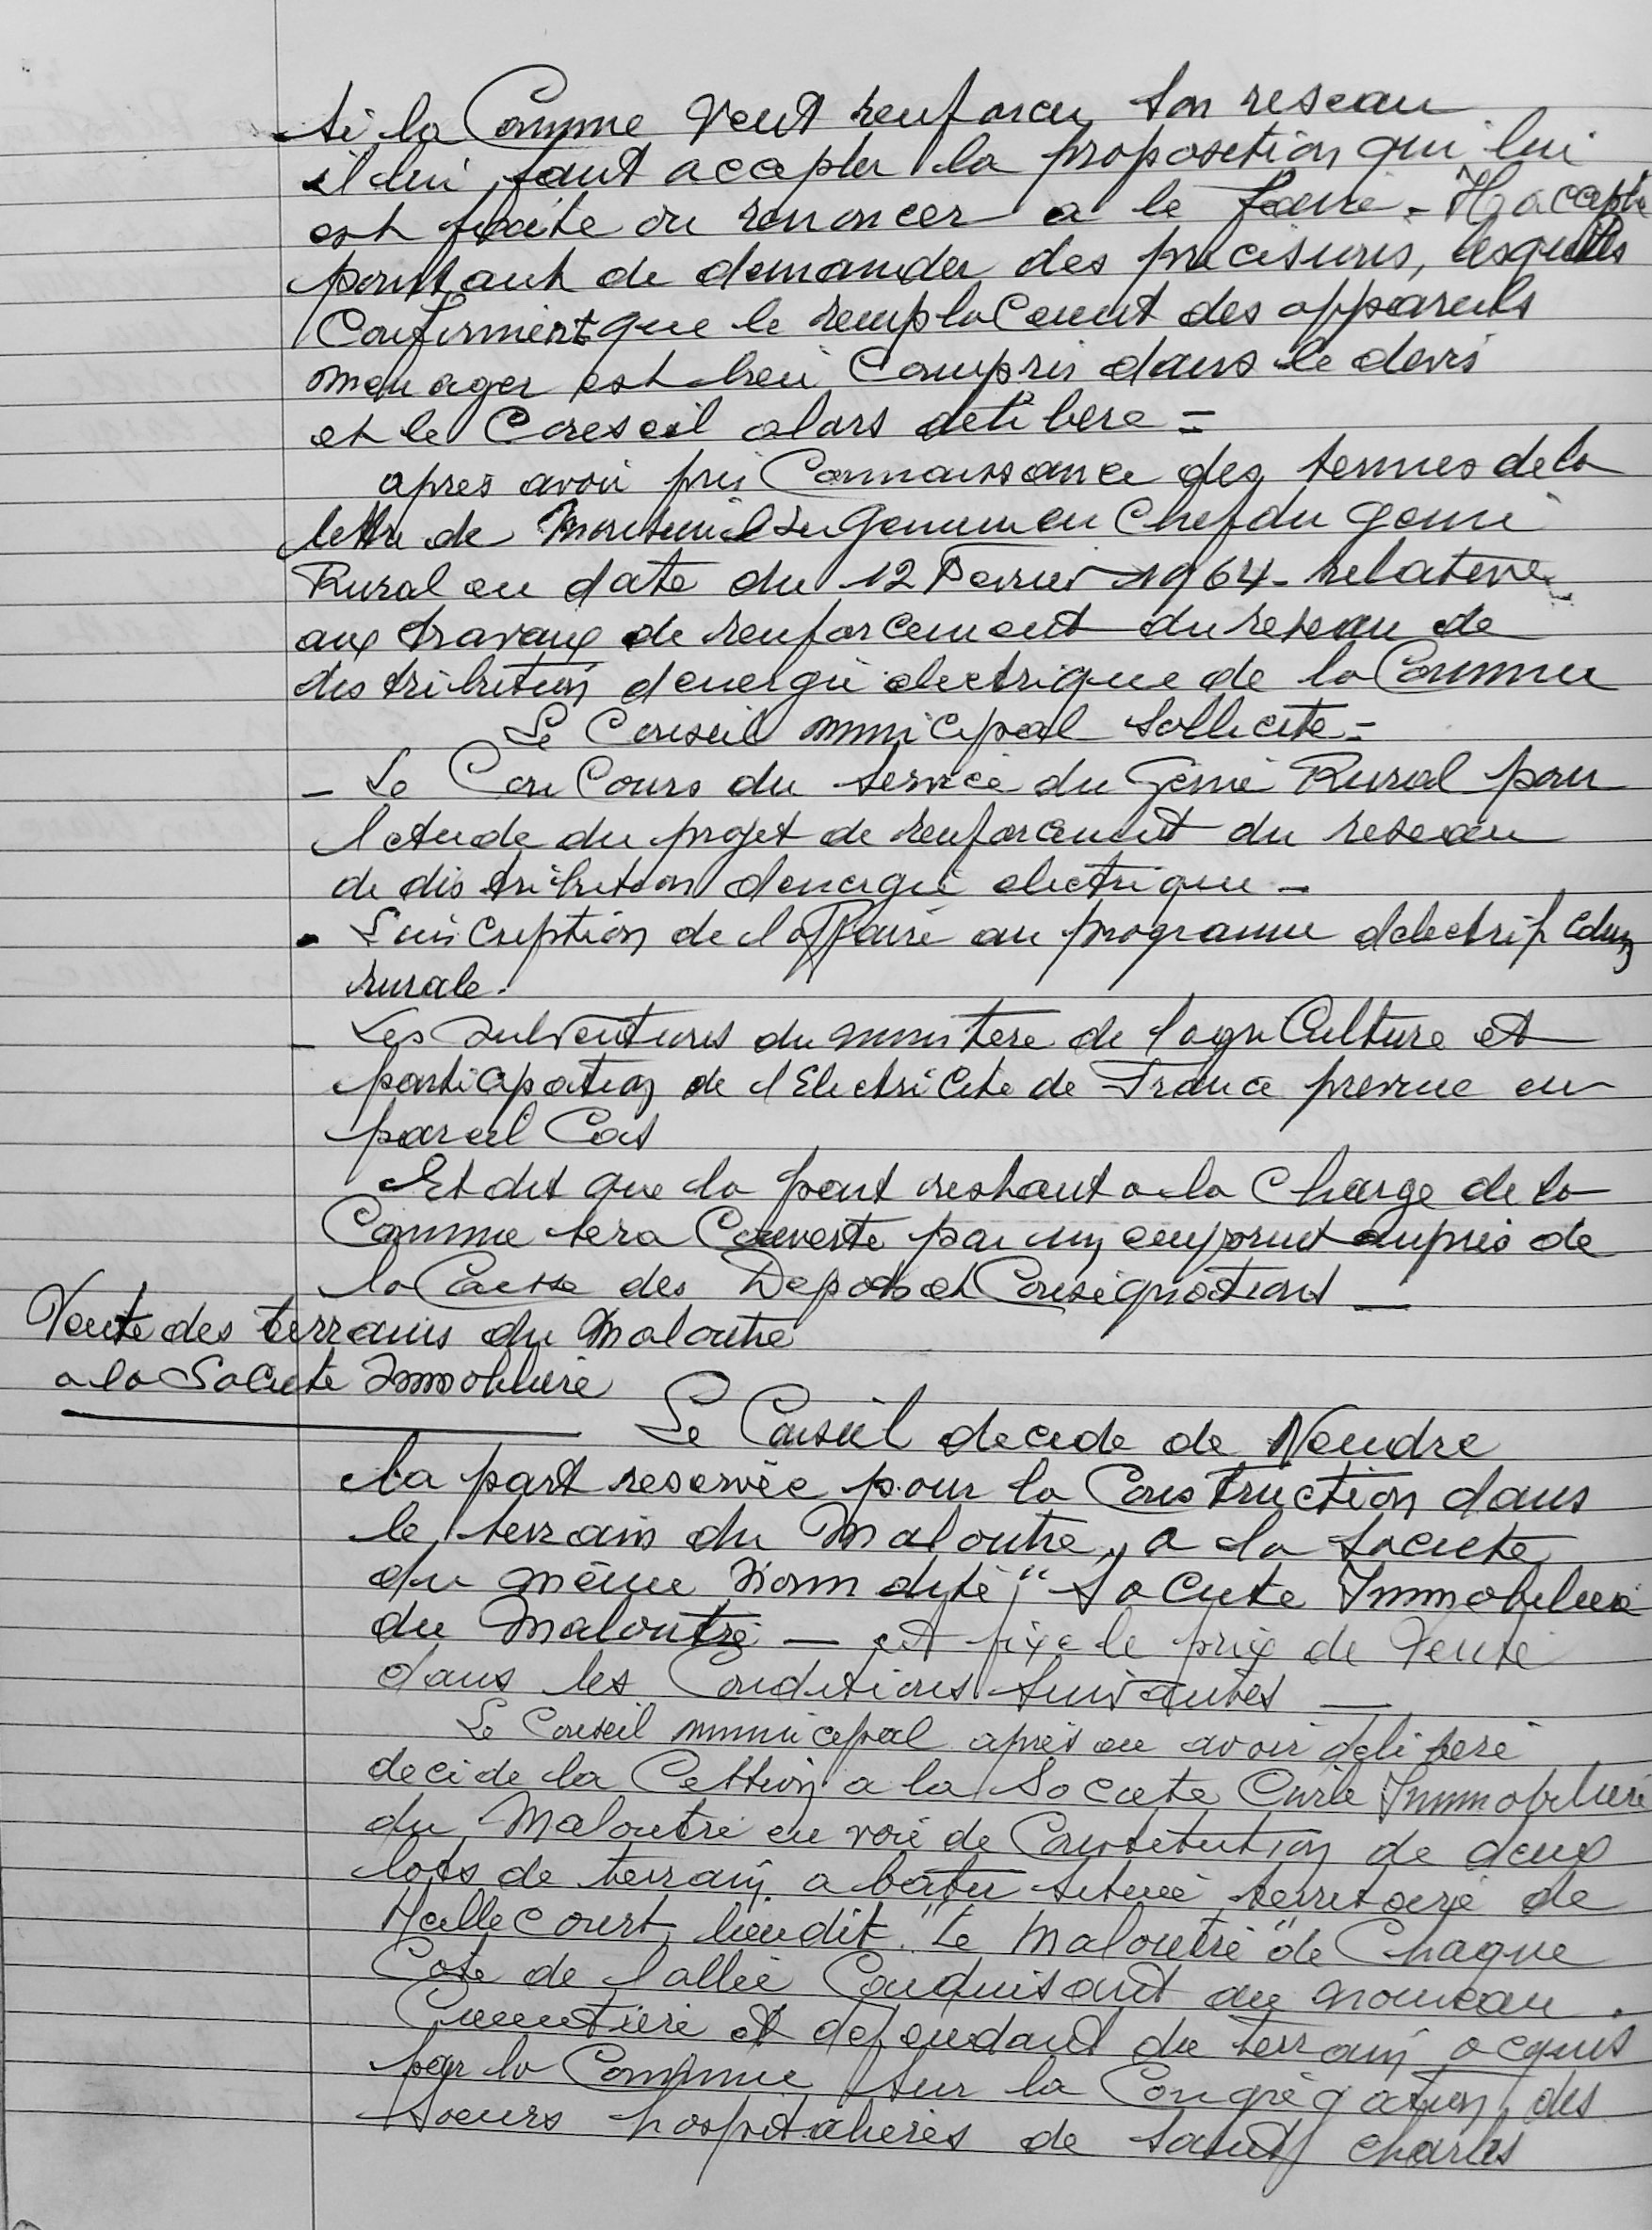 si la Comme veut renforcer son reseau
il lui faut accepter la proposition qui lui
est faite ou renoncer a le faire - Il accepte
pourtant de demander des precisions, lesquelles
Confirment que le remplacement des appareils
menager est bien Compris dans le devis
et le Conseil alors delibere =
apres avoir pris Connaissance des termes de la
lettre de Monsieur l'Ingenieur en Chef du Genie
Rural en date du 12 Fevrier 1964 - relative
aux travaux de renforcement du reseau de
distribution d'energie electrique de la Commune
Le Conseil municipal sollicite =
- Le Concours du service du Genie Rural pour
l'etude du projet de renforcement du reseau
de distribution d'energie electrique -
- L'inscription de l'affaire au programme d'electrification
rurale.
- Les subventions du ministere de l'agriculture et
participation de l'Electricite de France prevue en
pareil Cas
Et dit que la part restant a la Charge de la
Comme sera Couverte par un emprunt aupres de
la Caisse des Depots et Consignations -
Vente des terrains du Maloutre
a la Societe Immobiliere
Le Conseil decide de Vendre
la part reservée pour la Construction dans
le terrain du Maloutre, a la societe
du même nom dite "Societe Immobiliere
du Maloutre - et fixe le prix de Vente
dans les Conditions suivantes -
Le Conseil municipal après en avoir déliberé
decide la Cession a la Societe Civile Immobiliere
du Maloutre en voie de Constitution de deux
lots de terrain a bâtir situé territoire de
Hallecourt lieudit "Le Maloutre" de Chaque
Coté de l'allée Conduisant au nouveau
Cimetière et dépendant du terrain acquis
par la Commune sur la Congrégation des
soeurs hospitalieres de saint charles